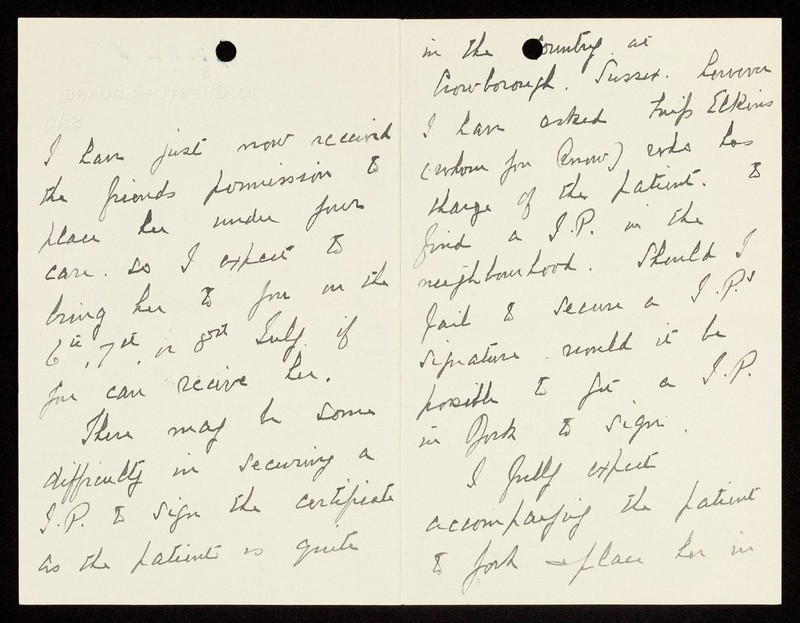 I have just now received
the friends permission to
place her under your
care. so I expect to
bring her to you on the
6th, 7th, or 8th July if
you can receive her.
There may be some
difficulty in securing a
J.P. to sign the certificate
as the patient is quite
in the Country at
Crowborough. Sussex. However
I have asked Miss Elkins
(whom you know) who has
charge of the patient. to
find a J.P. in the
neighbourhood. Should I
fail to secure a J.P.s
signature. would it be
possible to get a J.P.
in York to sign.
I fully expect
accompanying the patient
to York & place her in